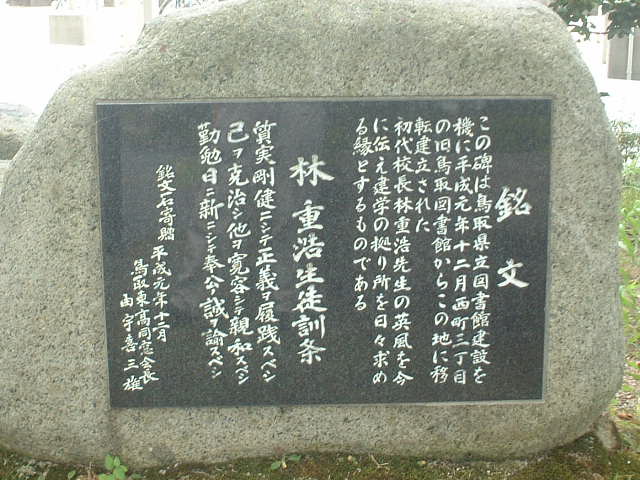 銘文
この碑は鳥取県立図書館建設を
機に平成元年十二月西町三丁目
の旧鳥取図書館からこの地に移
転建立された
初代校長林重浩先生の英風を今
に伝え建学の拠り所を日々求め
る縁とするものである
林重浩生徒訓条
質実剛健ニシテ正義ヲ履践スベシ
己ヲ克治シ他ヲ寛容シテ親和スベシ
勤勉日ニ新ニシテ奉公ノ誠ヲ諭スベシ
銘文石寄贈 平成元年十二月
鳥取東高同窓会長
由宇喜三雄